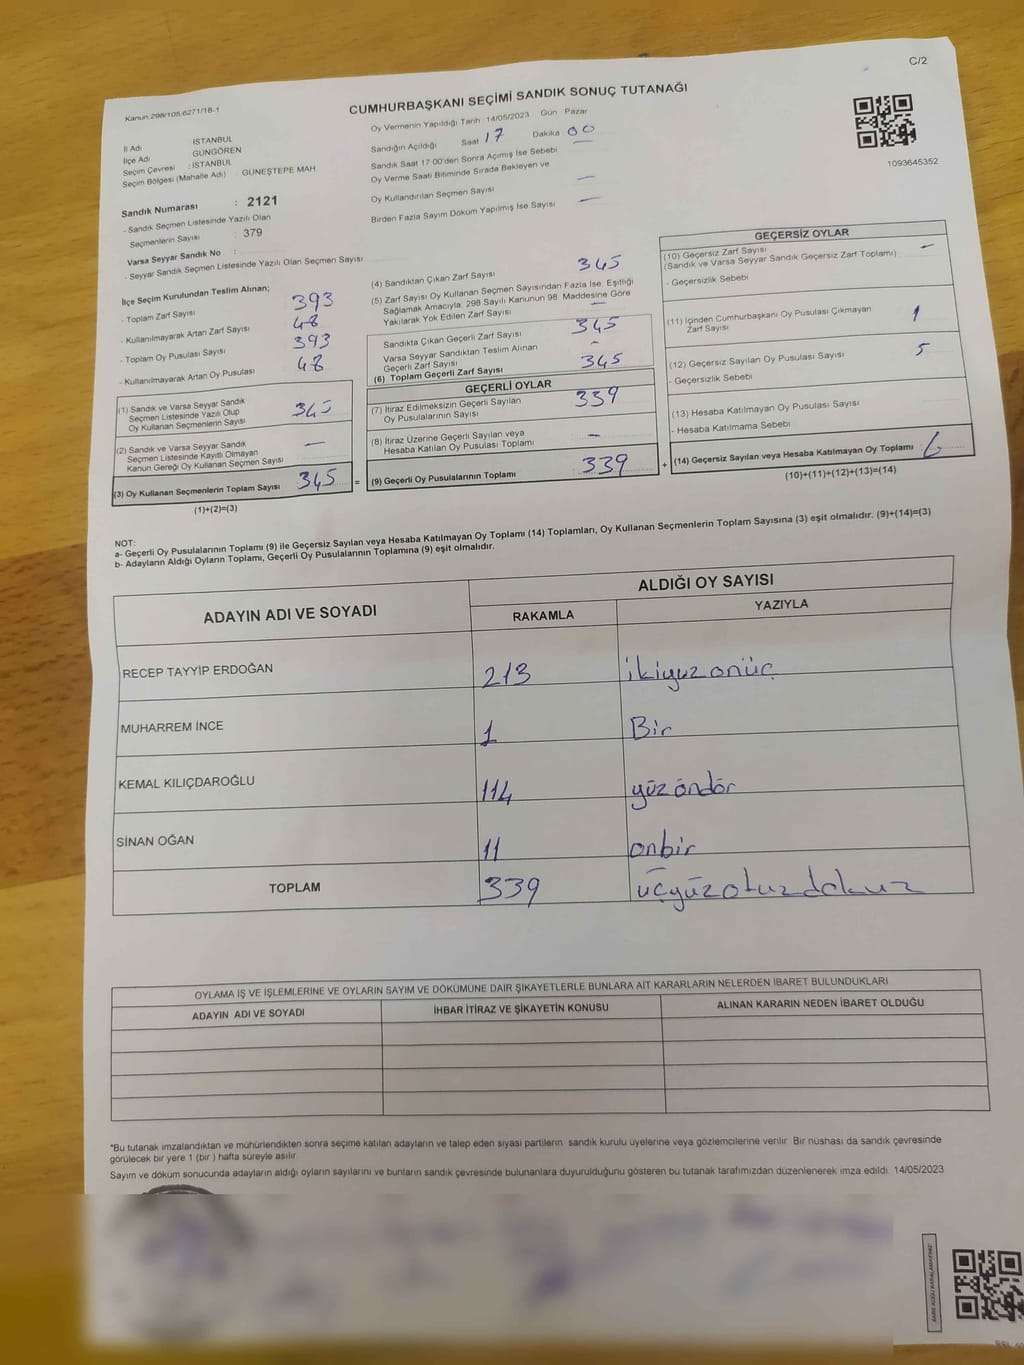 C/2
Kanun:298/105,6271/18-1
CUMHURBAŞKANI SEÇİMİ SANDIK SONUÇ TUTANAĞI
Oy Vermenin Yapıldığı Tarih 14/05/2023 Gün Pazar
İl Adı İSTANBUL
İlçe Adı GÜNGÖREN
Seçim Çevresi : İSTANBUL
Seçim Bölgesi (Mahalle Adı) GÜNEŞTEPE MAH
Sandık Numarası : 2121
- Sandık Seçmen Listesinde Yazılı Olan
Seçmenlerin Sayısı : 379
Varsa Seyyar Sandık No :
- Seyyar Sandık Seçmen Listesinde Yazılı Olan Seçmen Sayısı
Sandığın Açıldığı Saat 17 Dakika 00
Sandık Saat 17:00'den Sonra Açımış İse Sebebi —
Oy Verme Saati Bitiminde Sırada Bekleyen ve
Oy Kullandırılan Seçmen Sayısı —
Birden Fazla Sayım Döküm Yapılmış İse Sayısı —
1093645352
İlçe Seçim Kurulundan Teslim Alınan;
- Toplam Zarf Sayısı 393
- Kullanılmayarak Artan Zarf Sayısı 48
- Toplam Oy Pusulası Sayısı 393
- Kullanılmayarak Artan Oy Pusulası 48
(1) Sandık ve Varsa Seyyar Sandık
Seçmen Listesinde Yazılı Olup
Oy Kullanan Seçmenlerin Sayısı 345
(2) Sandık ve Varsa Seyyar Sandık
Seçmen Listesinde Kayıtlı Olmayan
Kanun Gereği Oy Kullanan Seçmen Sayısı —
(3) Oy Kullanan Seçmenlerin Toplam Sayısı 345 =
(1)+(2)=(3)
(4) Sandıktan Çıkan Zarf Sayısı 345
(5) Zarf Sayısı Oy Kullanan Seçmen Sayısından Fazla İse, Eşitliği
Sağlamak Amacıyla, 298 Sayılı Kanunun 98. Maddesine Göre
Yakılarak Yok Edilen Zarf Sayısı —
Sandıkta Çıkan Geçerli Zarf Sayısı 345
Varsa Seyyar Sandıktan Teslim Alınan
Geçerli Zarf Sayısı -
(6) Toplam Geçerli Zarf Sayısı 345
GEÇERLİ OYLAR
(7) İtiraz Edilmeksizin Geçerli Sayılan
Oy Pusulalarının Sayısı 339
(8) İtiraz Üzerine Geçerli Sayılan veya
Hesaba Katılan Oy Pusulası Toplamı —
(9) Geçerli Oy Pusulalarının Toplamı 339 +
GEÇERSİZ OYLAR
(10) Geçersiz Zarf Sayısı —
(Sandık ve Varsa Seyyar Sandık Geçersiz Zarf Toplamı)
- Geçersizlik Sebebi
(11) İçinden Cumhurbaşkanı Oy Pusulası Çıkmayan
Zarf Sayısı 1
(12) Geçersiz Sayılan Oy Pusulası Sayısı 5
- Geçersizlik Sebebi
(13) Hesaba Katılmayan Oy Pusulası Sayısı
- Hesaba Katılmama Sebebi
(14) Geçersiz Sayılan veya Hesaba Katılmayan Oy Toplamı 6
(10)+(11)+(12)+(13)=(14)
NOT:
a- Geçerli Oy Pusulalarının Toplamı (9) ile Geçersiz Sayılan veya Hesaba Katılmayan Oy Toplamı (14) Toplamları, Oy Kullanan Seçmenlerin Toplam Sayısına (3) eşit olmalıdır. (9)+(14)=(3)
b- Adayların Aldığı Oyların Toplamı, Geçerli Oy Pusulalarının Toplamına (9) eşit olmalıdır.
ADAYIN ADI VE SOYADI ALDIĞI OY SAYISI
RAKAMLA YAZIYLA
RECEP TAYYİP ERDOĞAN 213 ikiyüzonüç
MUHARREM İNCE 1 Bir
KEMAL KILIÇDAROĞLU 114 yüzöndör
SİNAN OĞAN 11 onbir
TOPLAM 339 üçyüzotuzdokuz
OYLAMA İŞ VE İŞLEMLERİNE VE OYLARIN SAYIM VE DÖKÜMÜNE DAİR ŞİKAYETLERLE BUNLARA AİT KARARLARIN NELERDEN İBARET BULUNDUKLARI
ADAYIN ADI VE SOYADI İHBAR İTİRAZ VE ŞİKAYETİN KONUSU ALINAN KARARIN NEDEN İBARET OLDUĞU
*Bu tutanak imzalandıktan ve mühürlendikten sonra seçime katılan adayların ve talep eden siyasi partilerin sandık kurulu üyelerine veya gözlemcilerine verilir. Bir nüshası da sandık çevresinde
görülecek bir yere 1 (bir ) hafta süreyle asılır.
Sayım ve döküm sonucunda adayların aldığı oyların sayılarını ve bunların sandık çevresinde bulunanlara duyurulduğunu gösteren bu tutanak tarafımızdan düzenlenerek imza edildi. 14/05/2023